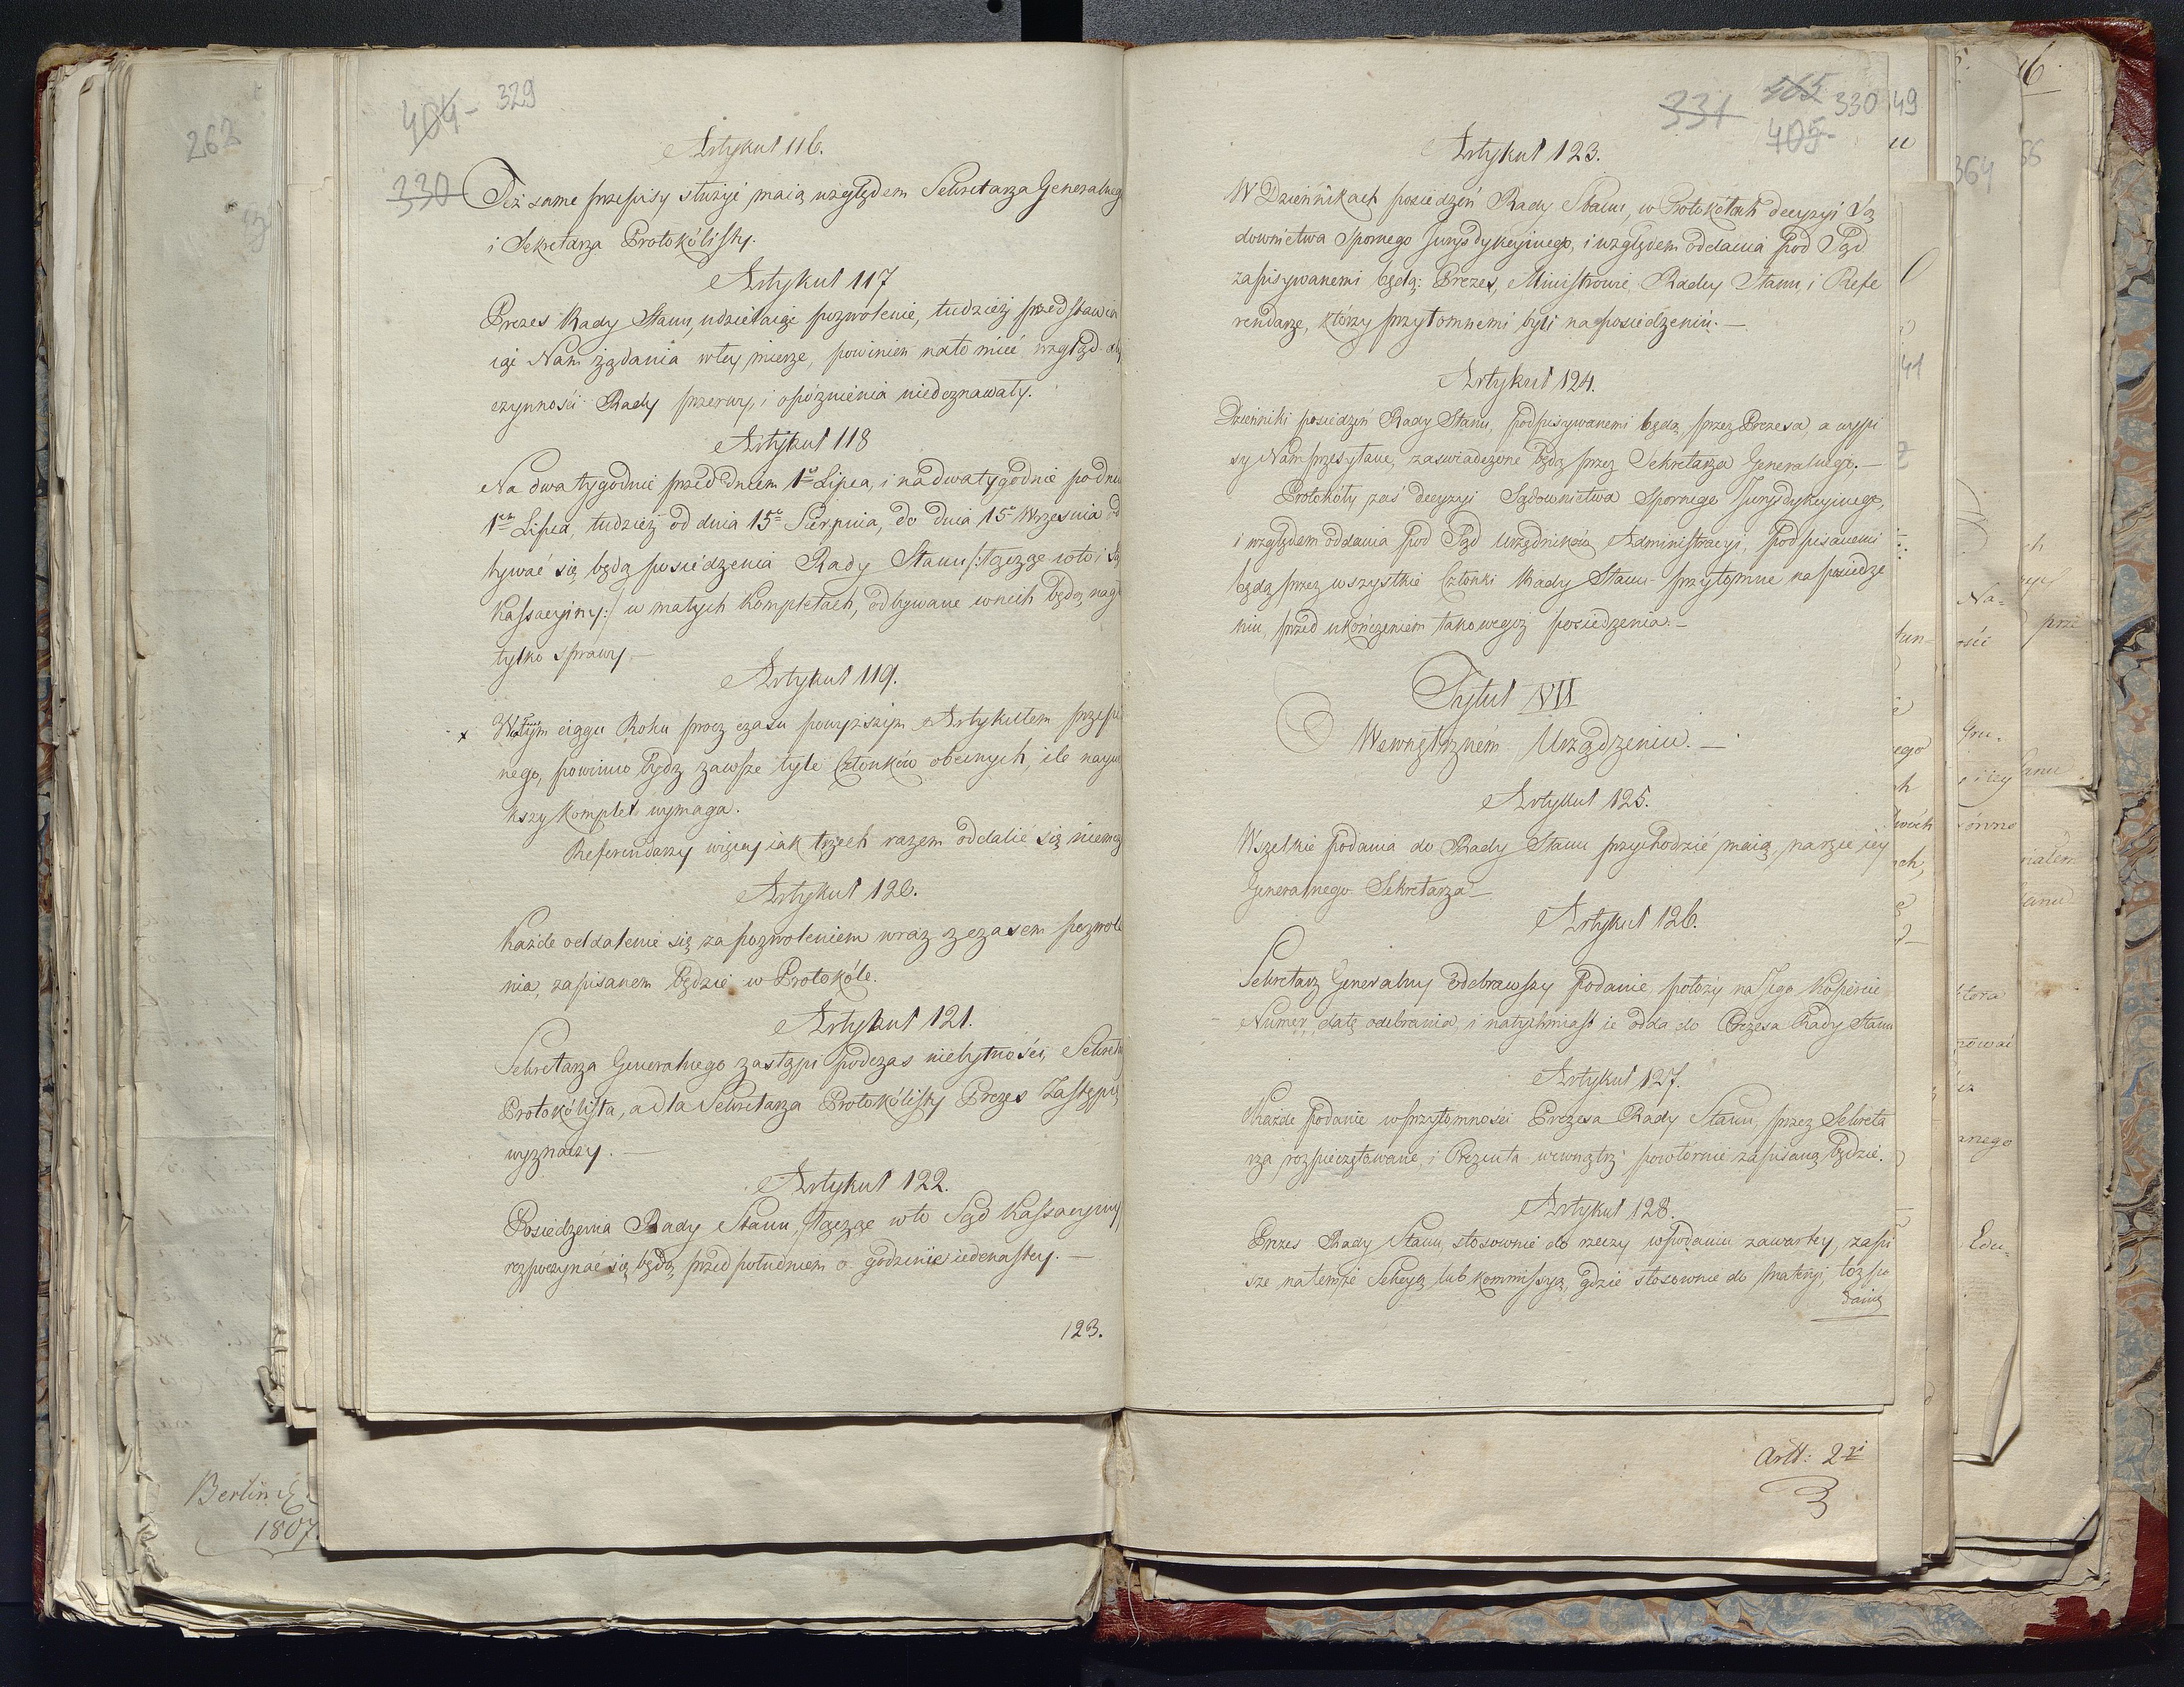 404- 329
Artykuł 116.
330 Też same przepisy służyć maią względem Sekretarza Generalneg
i Sekretarza Protokólisty.
Artykuł 117
Prezes Rady Stanu, udzielaiąc pozwolenie, tudzież przedstawia
iąc Nam żądania w tey mierze, powinien na to mieć wzgląd aby
czynności Rady przerwy, i opóznienia niedoznawały.
Artykuł 118
Na dwa tygodnie przed dniem 1o Lipca, i na dwa tygodnie po dniu
1szm Lipca, tudzież od dnia 15o Sierpnia, do dnia 15o Września od
bywać się będą posiedzenia Rady Stanu /:łącząc w to i Są
Kassacyiny:/ w małych kompletach, odbywane w nich będą nagł
tylko sprawy.—
Artykuł 119.
x W ciągu Roku procz czasu powyższym Artykułem przepi
nego, powinno bydz zawsze tyle Członków obecnych, ile nayw
kszy komplet wymaga.
Referendarzy więcey iak trzech razem oddalić się niemog
Artykuł 120.
Każde oddalenie się za pozwoleniem wraz z czasem pozwole
nia, zapisanem będzie w Protokóle.
Artykuł 121.
Sekretarza Generalnego zastąpi podczas niebytności, Sekreta
Protokólista, a dla Sekretarza Protokólisty Prezes Zastępcę
wyznaczy.—
Artykuł 122.
Posiedzenia Rady Stanu, łącząc w to Sąd Kassacyiny
rozpoczynać się będą, przed południem o godzinie iedenastey.—
123.
331 405 330
405-
Artykuł 123.
W Dziennikach posiedzeń Rady Stanu, w Protokółach decyzyi Są
downictwa Spornego Jurysdykcyinego, i względem oddania pod Sąd
zapisywanemi będą: Prezes, Ministrowie, Radcy Stanu, i Refe
rendarze, którzy przytomnemi byli na posiedzeniu.—
Artykuł 124.
Dzienniki posiedzeń Rady Stanu, podpisywanemi będą przez Prezesa, a wypi
sy Nam przesyłane, zaświadczone będą przez Sekretarza Generalnego.—
Protokóły zaś decyzyi Sądownictwa Spornego Jurysdykcyinego,
i względem oddania pod Sąd urzędników Administracyi, podpisanemi
będą przez wszystkie Członki Rady Stanu przytomne na posiedze
niu, przed ukończeniem takowegoż posiedzenia.—
Tytuł VII
O Wewnętrzném Urządzeniu.—
Artykuł 125.
Wszelkie podania do Rady Stanu przychodzić maią, na ręce iey
Generalnego Sekretarza—
Artykuł 126.
Sekretarz Generalny odebrawszy Podanie, położy na Jego kopercie
Numer, datę odebrania, i natychmiast ie odda do Prezesa Rady Stanu
Artykuł 127.
Każde podanie w przytomności Prezesa Rady Stanu, przez Sekreta
rza rozpieczętowane, i Prezenta wewnątrz powtórnie zapisaną będzie.
Artykuł 128.
Prezes Rady Stanu, stosownie do rzeczy w podaniu zawartey, zapi
sze na temże Sekcyą lub kommissyą, gdzie stosownie do materyi, toż po
danie
262
Berlin
1807.
Artt: 2
49
41
364
Na-
prze
ości
Gru-
ego
tun-
ównie
która
Edu-